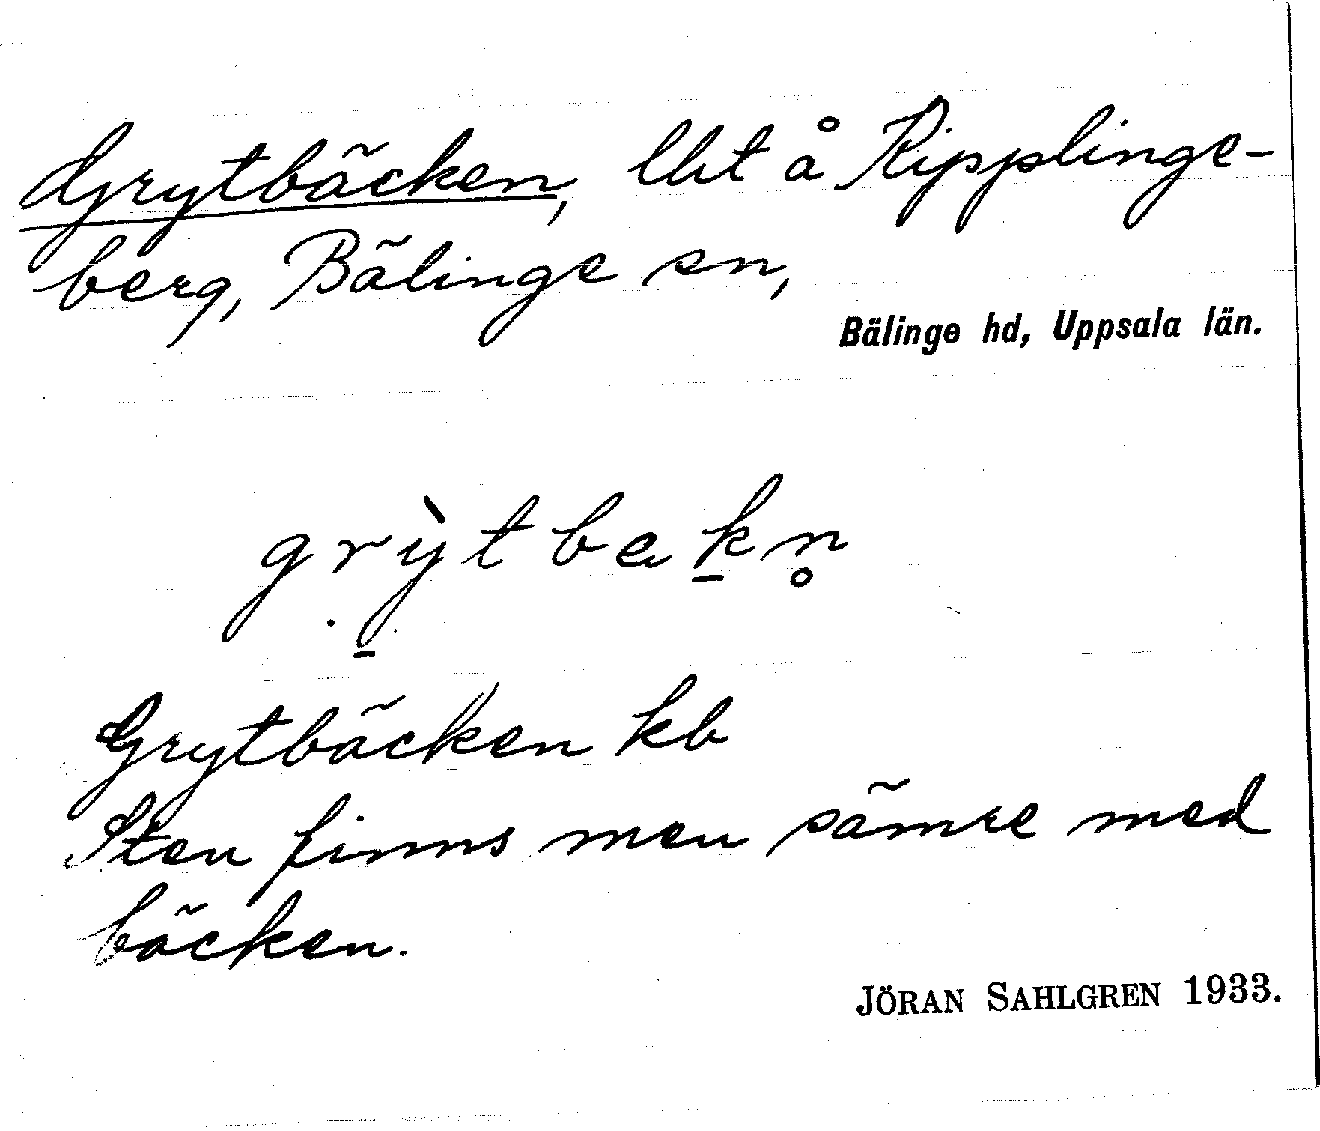 Grytbäcken, lht å Ripplinge-
berg, Bälinge sn,
Bälinge hd, Uppsala län.
grỳtbækn̥
Grytbäcken kb
Sten finns men sämre med
bäcken.
JÖRAN SAHLGREN 1933.